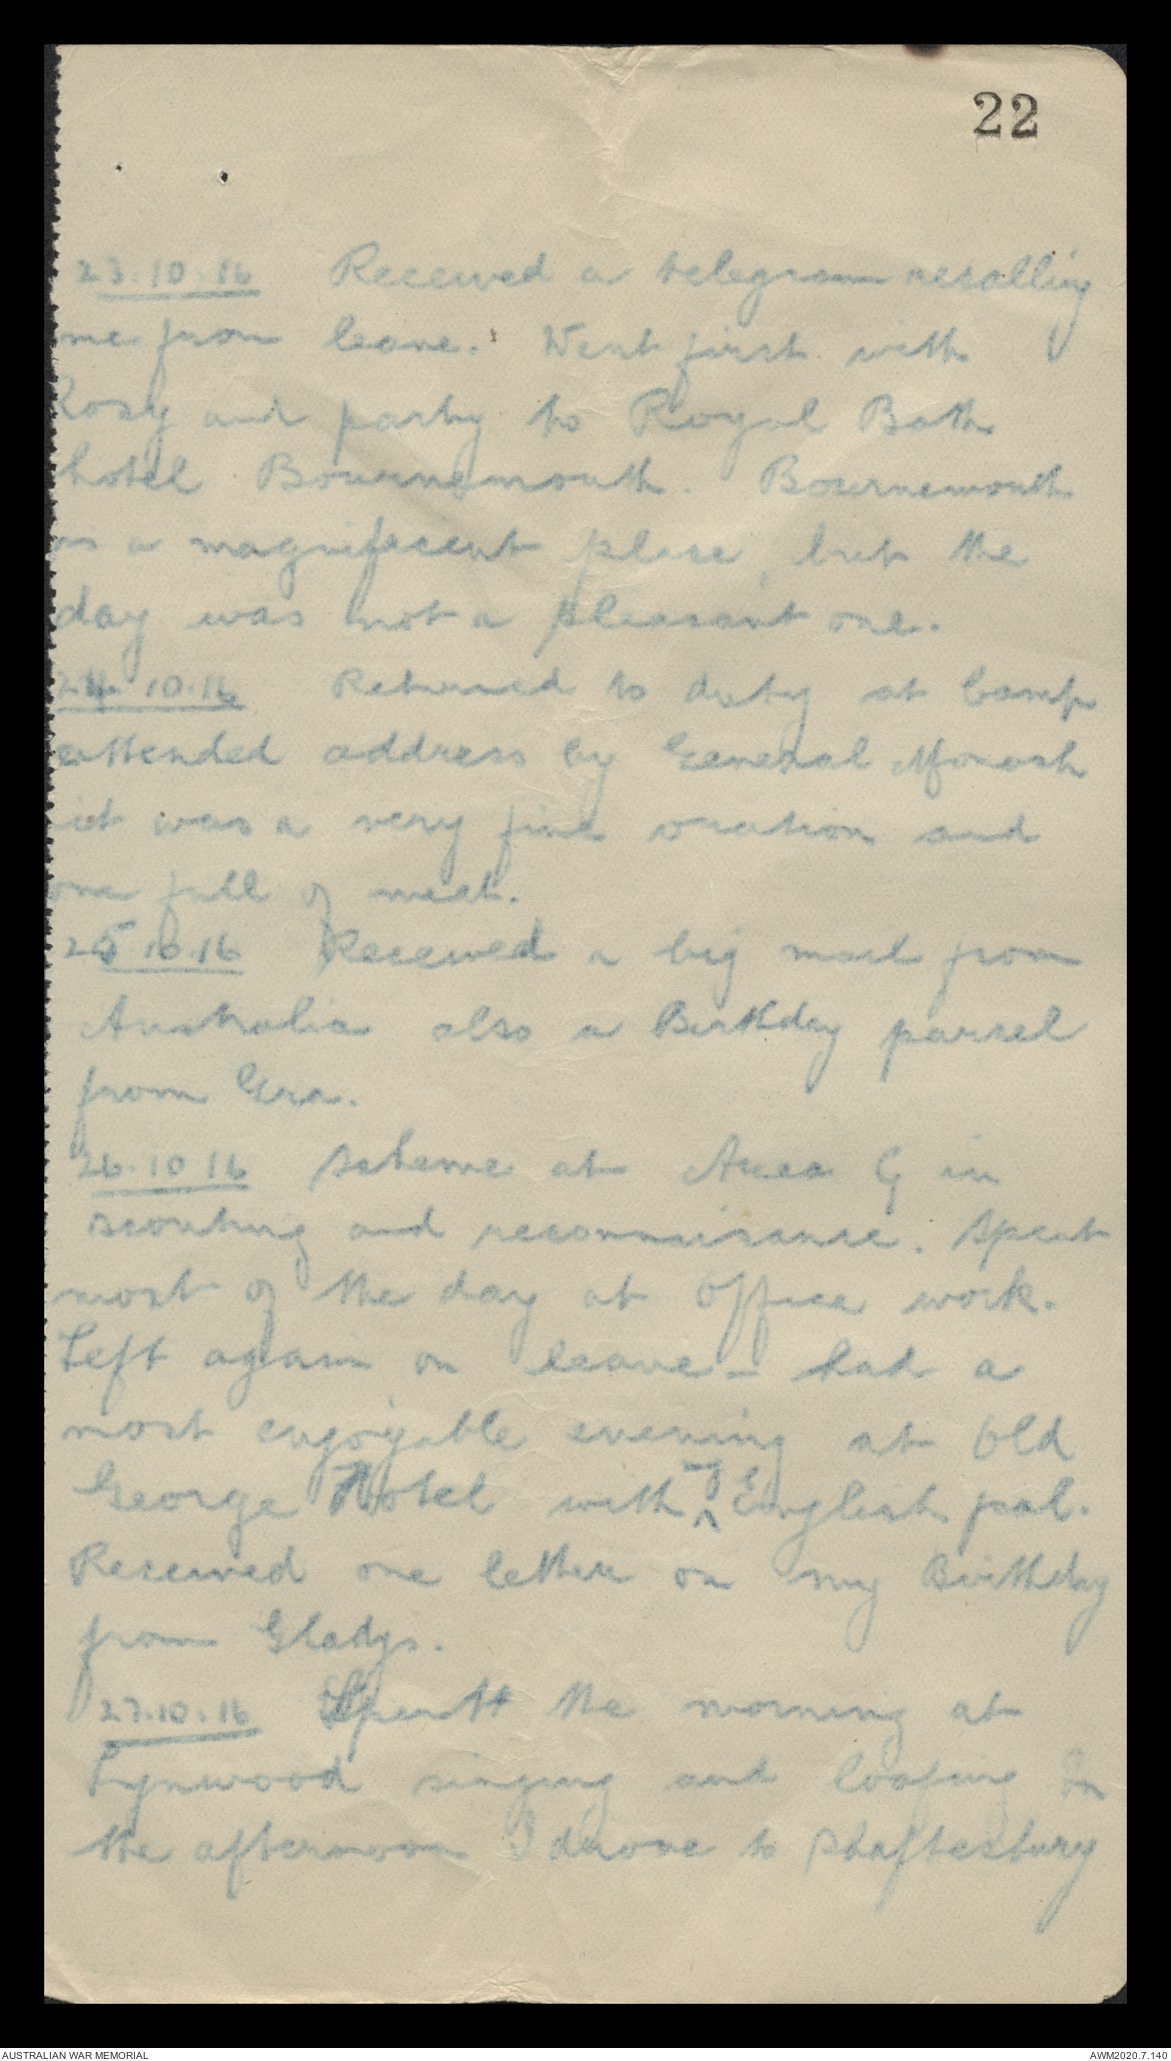 22
23.10.16 Received a telegram recalling
me from leave. Went first with
Rosy and party to Royal Bath
hotel Bournemouth. Bournemouth
is a magnificent place, but the
day was not a pleasant one.
24.10.16 Returned to duty at Camp
attended address by General Monash
it was a very fine oration and
one full of meat.
25.10.16 Received a big mail from
Australia also a Birthday parcel
from Gra.
26.10.16 Scheme at Area G in
scouting and reconnaisance. Spent
most of the day at Office work.
Left again on leave - had a
most enjoyable evening at Old
George Hotel with my English pal.
Received one letter on my Birthday
from Gladys.
27.10.16 Spent the morning at
Lynwood singing and loafing In
the afternoon I drove to Shaftesbury
AUSTRALIAN WAR MEMORIAL
AWM2020.7.140